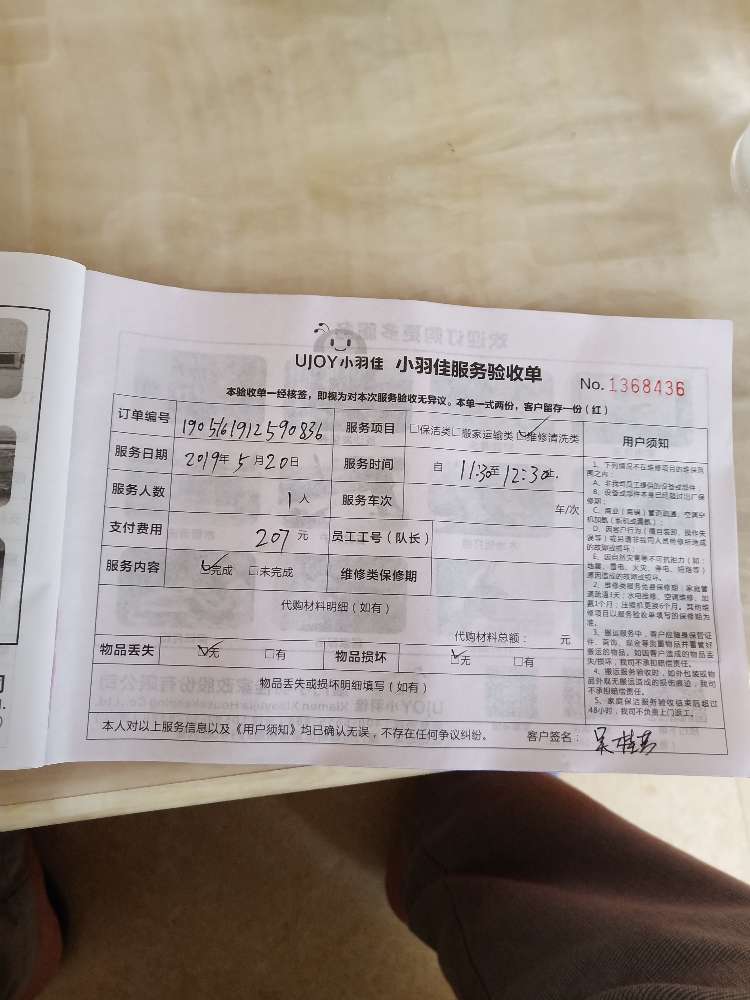 UJOY小羽佳 小羽佳服务验收单
No. 1368436
本验收单一经核签，即视为对本次服务验收无异议。本单一式两份，客户留存一份（红）
订单编号 190516191259 0836 服务项目 □保洁类□搬家运输类☑维修清洗类
服务日期 2019年5月20日 服务时间 自 11:30至12:30止.
服务人数 1人 服务车次 车/次
支付费用 207元 员工工号（队长）
服务内容 ☑完成 □未完成 维修类保修期
代购材料明细（如有）
代购材料总额： 元
物品丢失 ☑无 □有 物品损坏 ☑无 □有
物品丢失或损坏明细填写（如有）
本人对以上服务信息以及《用户须知》均已确认无误，不存在任何争议纠纷。 客户签名：
用户须知
1、下列情况不在维修项目的维保范
围之内：
A、非我司员工提供的设备或部件
B、设备或部件本身已经超过出厂保
修期；
C、商业（商铺）管道疏通、空调空
机加氨（新机或漏氨）；
D、因客户行为（擅自装卸、操作失
误等）或另请非我司人员检修所造成
的故障或损坏；
E、因自然灾害等不可抗拒力（如：
地震、雷电、火灾、停电、短路等）
原因造成的故障或毁坏。
2、维修类服务免费保修期：家庭管
道疏通1天；水电维修、空调维修、加
氨1个月；压缩机更换6个月。其他维
修项目以服务验收单填写的保修期为
准。
3、搬运服务中，客户应随身保管证
件、首饰、现金等贵重物品并看管好
搬运的物品。如因客户造成的物品丢
失/损坏，我司不承担赔偿责任。
4、搬运服务验收时，如外包装或物
品外观无搬运造成的损伤痕迹，我司
不承担赔偿责任。
5、家庭保洁服务验收结束后超过
48小时，我司不负责上门返工。